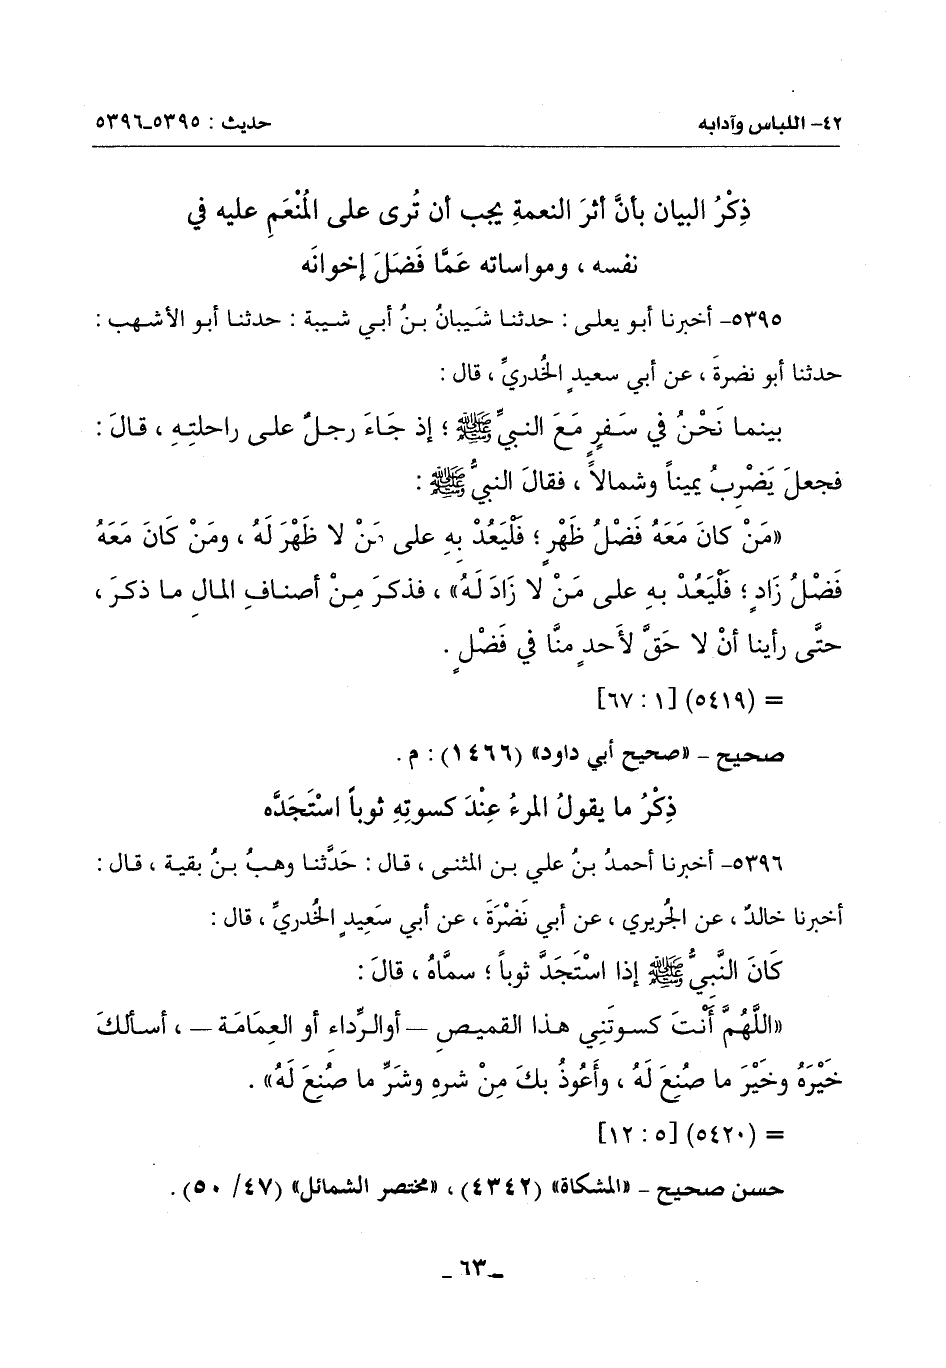 ٤٢- اللباس وآدابه
حديث : ٥٣٩٥ـ٥٣٩٦
ذِكْرُ البيان بأنَّ أثرَ النعمةِ يجب أن تُرى على المُنْعَمِ عليه في
نفسه ، ومواساته عَمَّا فَضَلَ إخوانَه
٥٣٩٥- أخبرنا أبو يعلى : حدثنا شَيبانُ بنُ أبي شيبة : حدثنا أبو الأشهب :
حدثنا أبو نضرةَ ، عن أبي سعيدٍ الخُدريِّ ، قال :
بينما نَحْنُ في سَفرٍ مَعَ النبيِّ ﷺ ؛ إذ جَاءَ رجلٌ على راحلتِهِ ، قالَ :
فجعلَ يَضْرِبُ يميناً وشمالاً ، فقالَ النبيُّ ﷺ :
«مَنْ كانَ مَعَهُ فَضْلُ ظَهْرٍ ؛ فَلْيَعُدْ بِهِ على مَنْ لا ظَهْرَ لَهُ ، ومَنْ كَانَ مَعَهُ
فَضْلُ زَادٍ ؛ فَلْيَعُدْ بهِ على مَنْ لا زَادَ لَهُ» ، فذكرَ مِنْ أصنافِ المالِ ما ذكرَ ،
حتَّى رأينا أنْ لا حَقَّ لأَحدٍ منَّا في فَضْلٍ .
= (٥٤١٩) [١ : ٦٧]
صحيح - «صحيح أبي داود» (١٤٦٦) : م .
ذِكْرُ ما يقولُ المرءُ عِنْدَ كسوتِهِ ثوباً اسْتَجَدَّه
٥٣٩٦- أخبرنا أحمدُ بنُ علي بن المثنى ، قال : حَدَّثنا وهبُ بنُ بقية ، قال :
أخبرنا خالدٌ ، عن الجُريري ، عن أبي نَضْرَةَ ، عن أبي سَعيدٍ الخُدريِّ ، قال :
كَانَ النَّبيُّ ﷺ إذا اسْتَجَدَّ ثوباً ؛ سمَّاهُ ، قالَ :
«اللَّهُمَّ أَنْتَ كسوتَنِي هذا القميصِ —أوالرِّداءِ أو العِمَامَة— ، أسألكَ
خَيْرَهُ وخَيْرَ ما صُنِعَ لَهُ ، وأَعُوذُ بكَ مِنْ شرهِ وشَرِّ ما صُنِعَ لَهُ» .
= (٥٤٢٠) [٥ : ١٢]
حسن صحيح - «المشكاة» (٤٣٤٢) ، «مختصر الشمائل» (٤٧/ ٥٠) .
ـ ٦٣ ـ